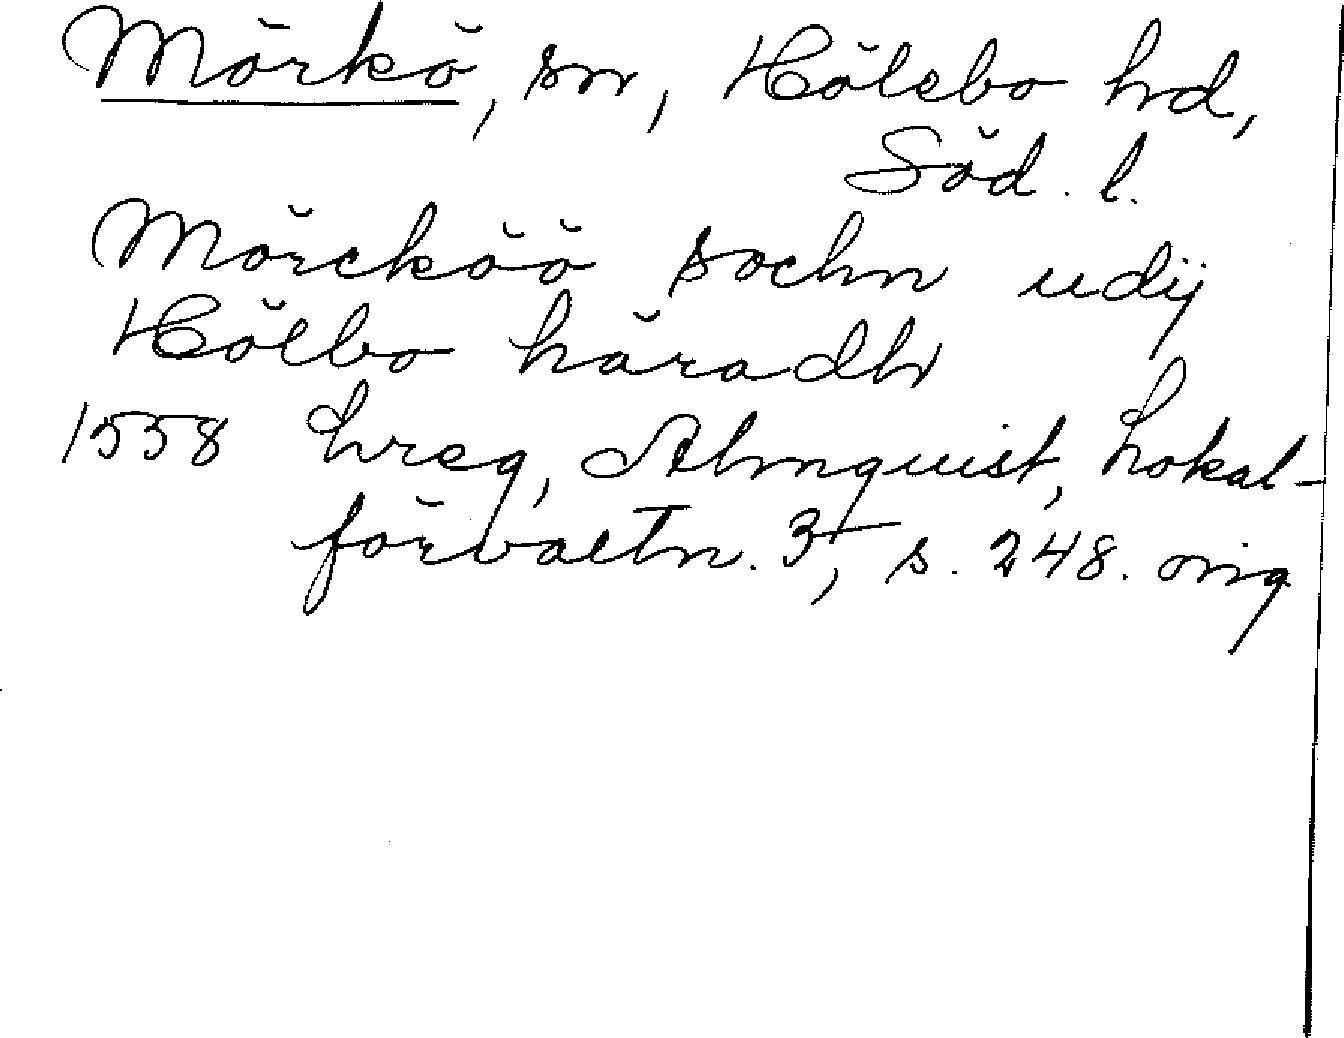 Mörkö, sn, Hölebo hd,
Söd. l.
Mörcköö sochn udij
Hölbo häradh
1558 Lreg, Almquist, Lokal-
förvaltn. 3, s. 248. orig